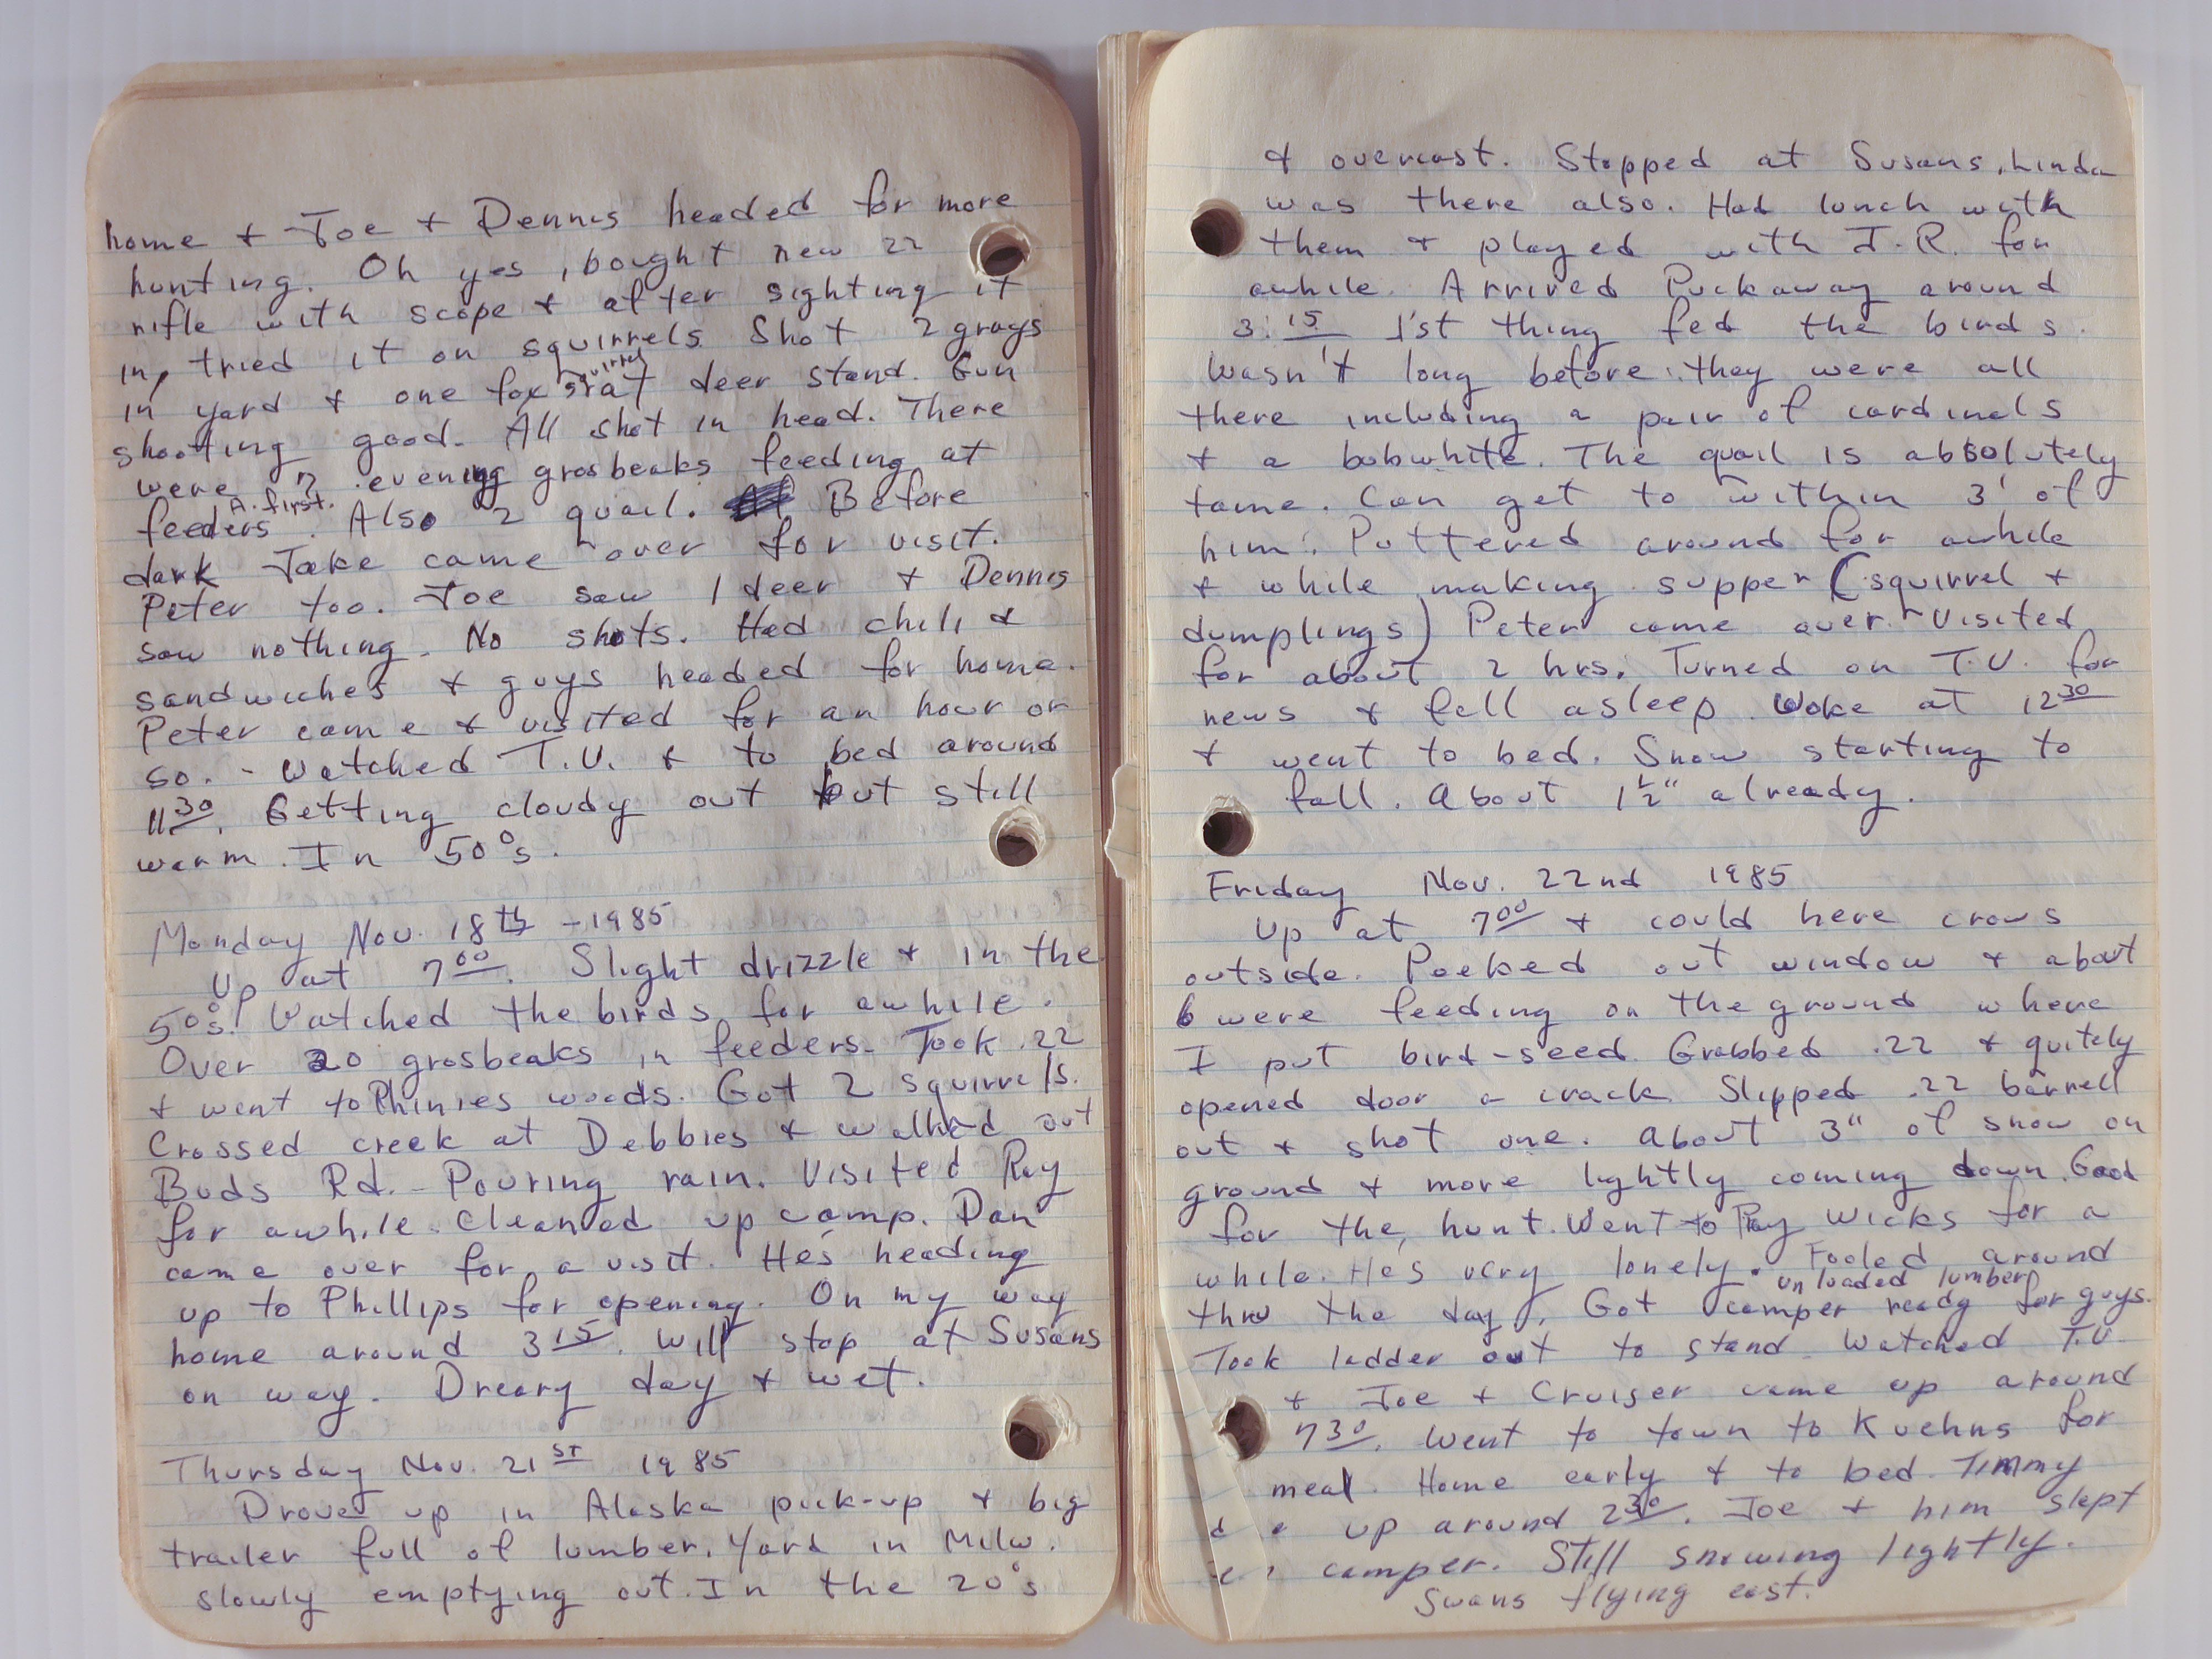 home + Joe + Dennis headed for more
hunting. Oh yes, bought new 22
rifle with scope + after sighting it
in, tried it on squirrels. Shot 2 grays
in yard + one fox squirrel at deer stand. Gun
shooting good. All shot in head. There
were 7 evening grosbeaks feeding at
feeders. A first. Also 2 quail. Before
dark Jake came over for visit.
Peter too. Joe saw 1 deer + Dennis
saw nothing. No shots. Had chili &
sandwiches + guys headed for home.
Peter came + visited for an hour or
so. - Watched T.V. + to bed around
11 30. Getting cloudy out but still
warm. In 50°s.
Monday Nov. 18th - 1985
Up at 7 00. Slight drizzle + in the
50°s. Watched the birds for awhile.
Over 20 grosbeaks in feeders. Took .22
+ went to Phinies woods. Got 2 squirrels.
Crossed creek at Debbies + walked out
Buds Rd. - Pouring rain. Visited Ray
for awhile. Cleaned up camp. Dan
came over for a visit. He's heading
up to Phillips for opening. On my way
home around 3 15. Will stop at Susans
on way. Dreary day + wet.
Thursday Nov. 21st 1985
Drove up in Alaska pick-up + big
trailer full of lumber. Yard in Milw.
slowly emptying out. In the 20°s
& overcast. Stopped at Susans, Linda
was there also. Had lunch with
them + played with J.R. for
awhile. Arrived Puckaway around
3:15 1'st thing fed the birds.
Wasn't long before they were all
there including a pair of cardinels
+ a bobwhite. The quail is absolutely
tame. Can get to within 3' of
him. Puttered around for awhile
+ while making supper (squirrel +
dumplings) Peter came over. Visited
for about 2 hrs. Turned on T.V. for
news + fell asleep. Woke at 12 30
+ went to bed. Snow starting to
fall. About 1 1/2" already.
Friday Nov. 22nd 1985
Up at 7 00 + could here crows
outside. Peeked out window + about
6 were feeding on the ground where
I put bird-seed. Grabbed .22 + quitely
opened door a crack. Slipped .22 barrell
out + shot one. About 3" of snow on
ground + more lightly coming down. Good
for the hunt. Went to Ray Wicks for a
while. He's very lonely. Fooled around
thru the day. Got unloaded lumber camper ready for guys.
Took ladder out to stand. Watched T.V.
+ Joe + Cruiser came up around
7 30. Went to town to Kuehns for
meal. Home early + to bed. Timmy
up around 2 30. Joe + him slept
camper. Still snowing lightly.
Swans flying east.